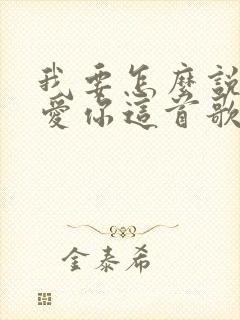 我要怎麼說
愛你這首歌
金泰希